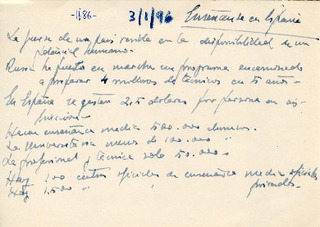 -1186- 3/1/96 Enseñanza en España
La fuerza de un país reside en la disponibilidad de un
potencial humano.
Rusia ha puesto en marcha un programa encaminado
a preparar 4 millones de técnicos en 5 años -
En España se gastan 2,5 dolares por persona en
Hacen enseñanza media 500.000 alumnos.
La Universitaria menos de 100.000 "
La profesional y técnica solo 50.000 -
Hay 100 centros oficiales de enseñanza media oficiales
Hay 1.500 " " " privados -